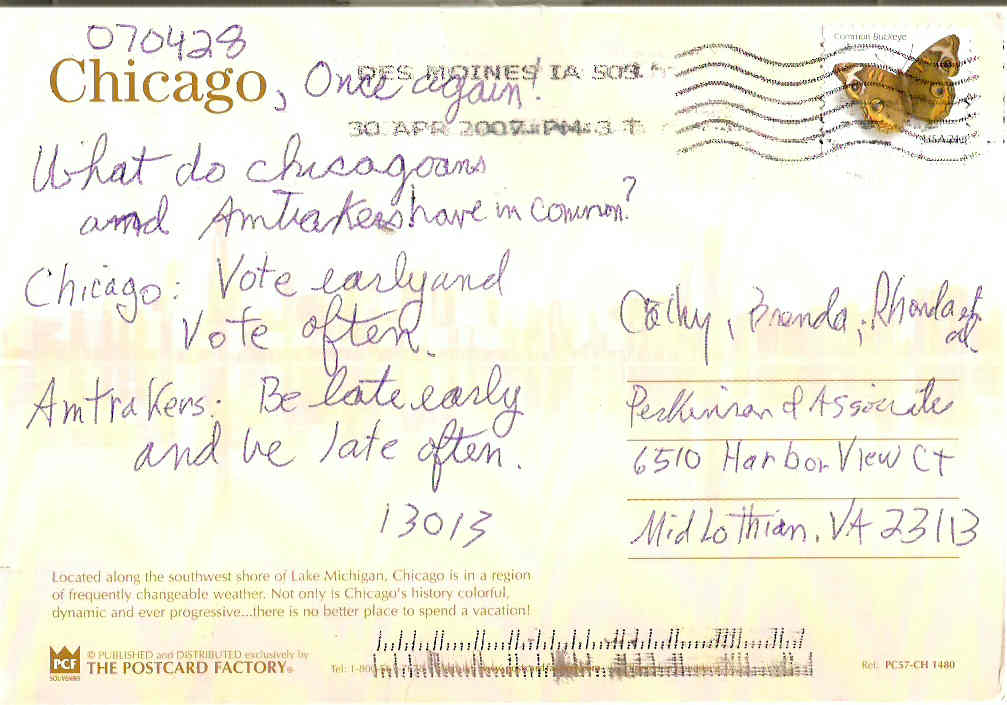 070428
Chicago, Once again!
DES MOINES IA 503
30 APR 2007 PM 3 T
Common Buckeye
USA 24¢
What do chicagoans
and Amtrakers have in common?
Chicago: Vote early and
Vote often.
Amtrakers: Be late early
and be late often.
13013
Cathy, Brenda, Rhonda et
al
Perkinson & Associates
6510 Harbor View Ct
Midlothian, VA 23113
Located along the southwest shore of Lake Michigan, Chicago is in a region
of frequently changeable weather. Not only is Chicago's history colorful,
dynamic and ever progressive...there is no better place to spend a vacation!
PCF
SOUVENIRS
© PUBLISHED and DISTRIBUTED exclusively by
THE POSTCARD FACTORY®
Tel: 1-800
Ref: PC57-CH 1480